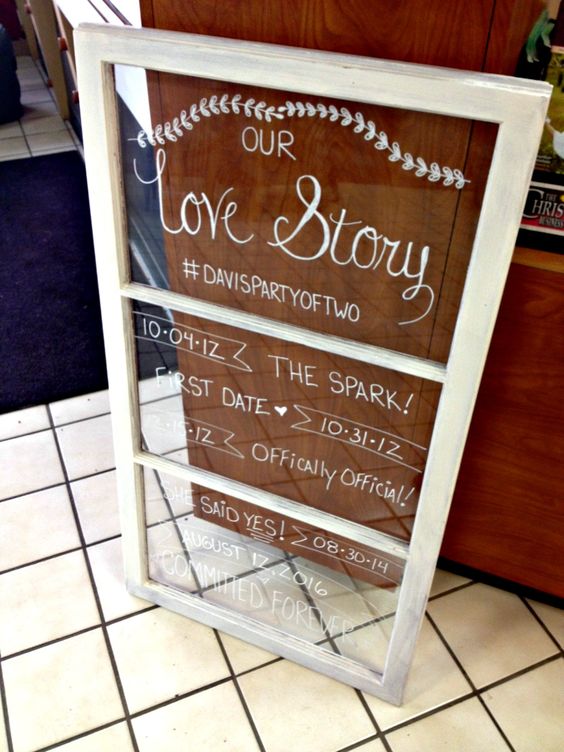 OUR
Love Story
#DAVISPARTYOFTWO
10·04·12 THE SPARK!
FIRST DATE ♥ 10·31·12
12·15·12 OFFICALLY OFFICIAL!
SHE SAID YES! 08·30·14
AUGUST 12, 2016
COMMITTED FOREVER
THE
CHRIS
BUSINESS